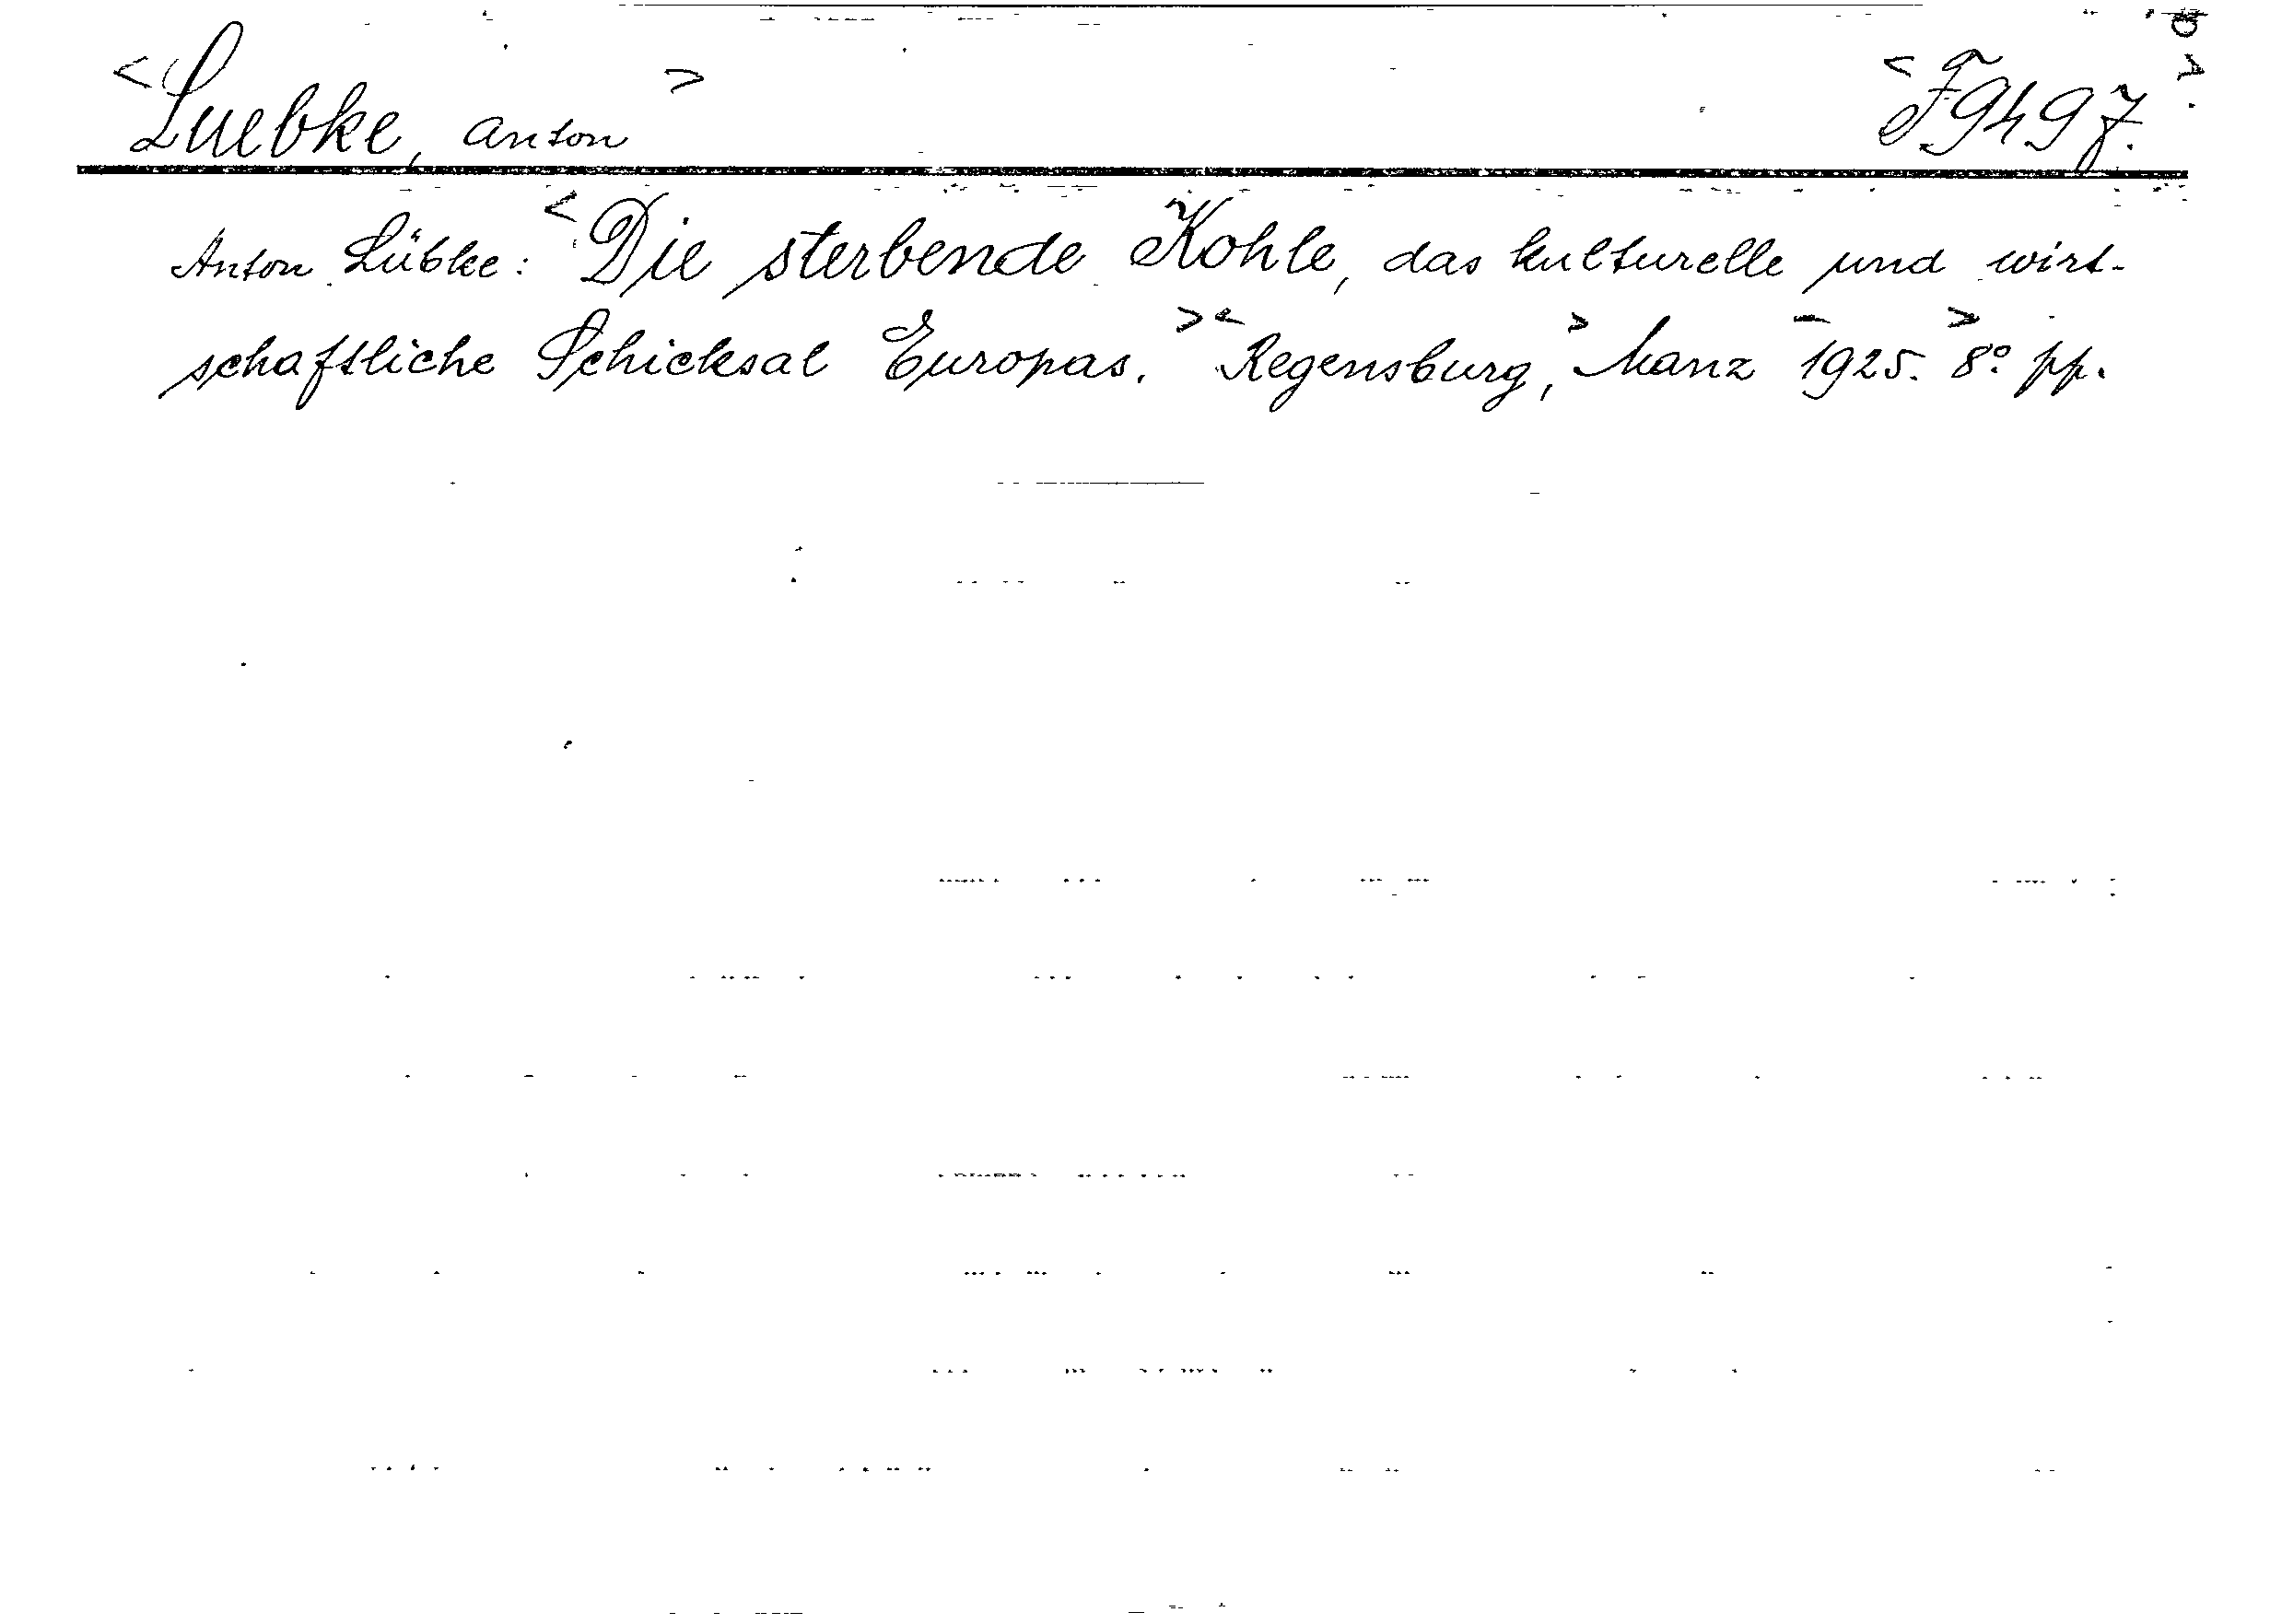 <Luebke, Anton> <F9497.>
Anton Lübke: <Die sterbende Kohle, das kulturelle und wirt-
schaftliche Schicksal Europas.> <Regensburg,> Manz <1925.> 8° pp.